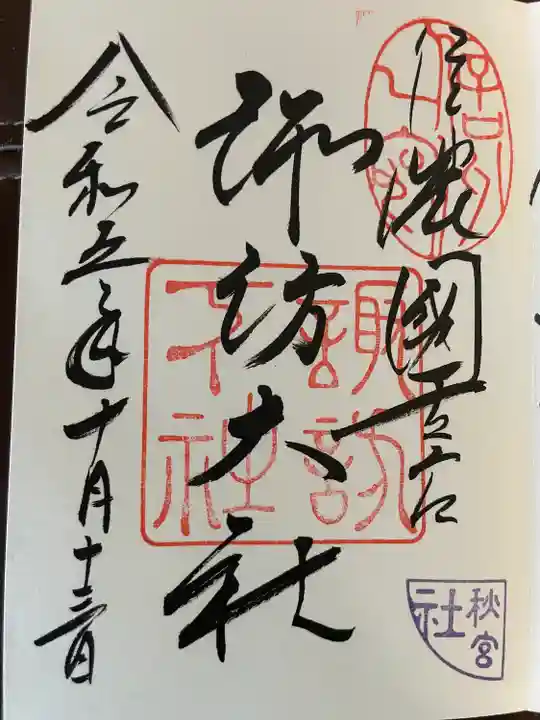 信濃國一之宮
諏訪大社
令和五年十月十三日
諏訪
下社
秋宮
社